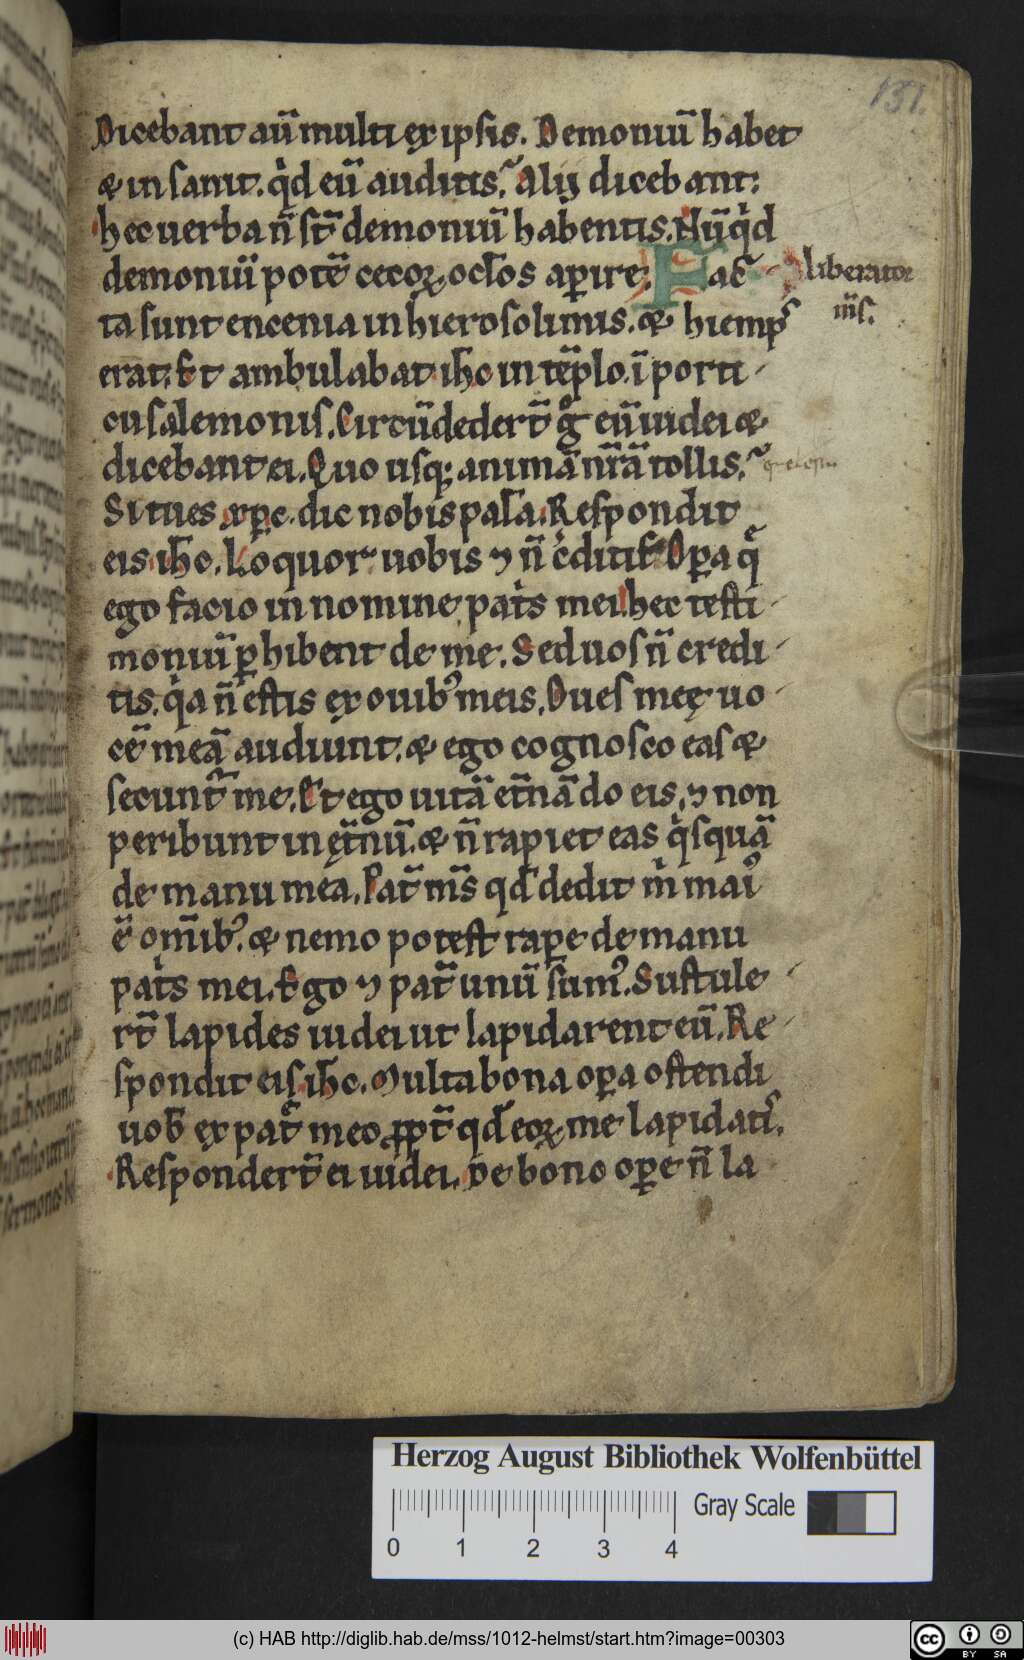 151.
Dicebant aū multi ex ipsis. Demoniū habet
& insanit. qͥd eū auditis. Alij dicebant:
hec uerba n̄ st̄ demoniū habentis. Nūqͥd
demoniū potē cecoꝝ ocl̄os aꝑire. Fac̄
ta sunt encenia in hierosolimis. & hiemps
erat. Et ambulabat ih̄c in tēplo. ī porti
cu salemonis. Circūdedert̄ gͦ eū iudei &
dicebant ei. Quo usqꝫ animā nr̄ā tollis.
Si tu es xp̄c. dic nobis pal̄a. Respondit
eis ih̄c. Loquor uobis ⁊ n̄ cͥditis. Oꝑa qͣ
ego facio in nomine patͥs mei. hec testi
moniū ꝑhibent de me. Sed uos n̄ credi
tis. qͥa n̄ estis ex ouibꝰ meis. Oues meę uo
cē meā audiunt. & ego cognosco eas &
secunt᷑ me. Et ego uitā et̄nā do eis, ⁊ non
peribunt in ęt̄nū. & n̄ rapiet eas qͥsquā
de manu mea. Pat̄ m̄s qd̄ dedit mͥ maiꝰ
ē om̄ibꝰ. & nemo potest raꝑe de manu
patͥs mei. Ego ⁊ pat̄ unū sumꝰ. Sustule
rt̄ lapides iudei ut lapidarent eū. Re
spondit eis ih̄c. Multa bona oꝑa ostendi
uob̄ ex patͤ meo ꝓpt̄ qd̄ eoꝝ me lapidatͥs.
Respondert̄ ei iudei. De bono oꝑe n̄ la
liberator
m̄s.
Herzog August Bibliothek Wolfenbüttel
0 1 2 3 4
Gray Scale
(c) HAB http://diglib.hab.de/mss/1012-helmst/start.htm?image=00303
cc BY SA